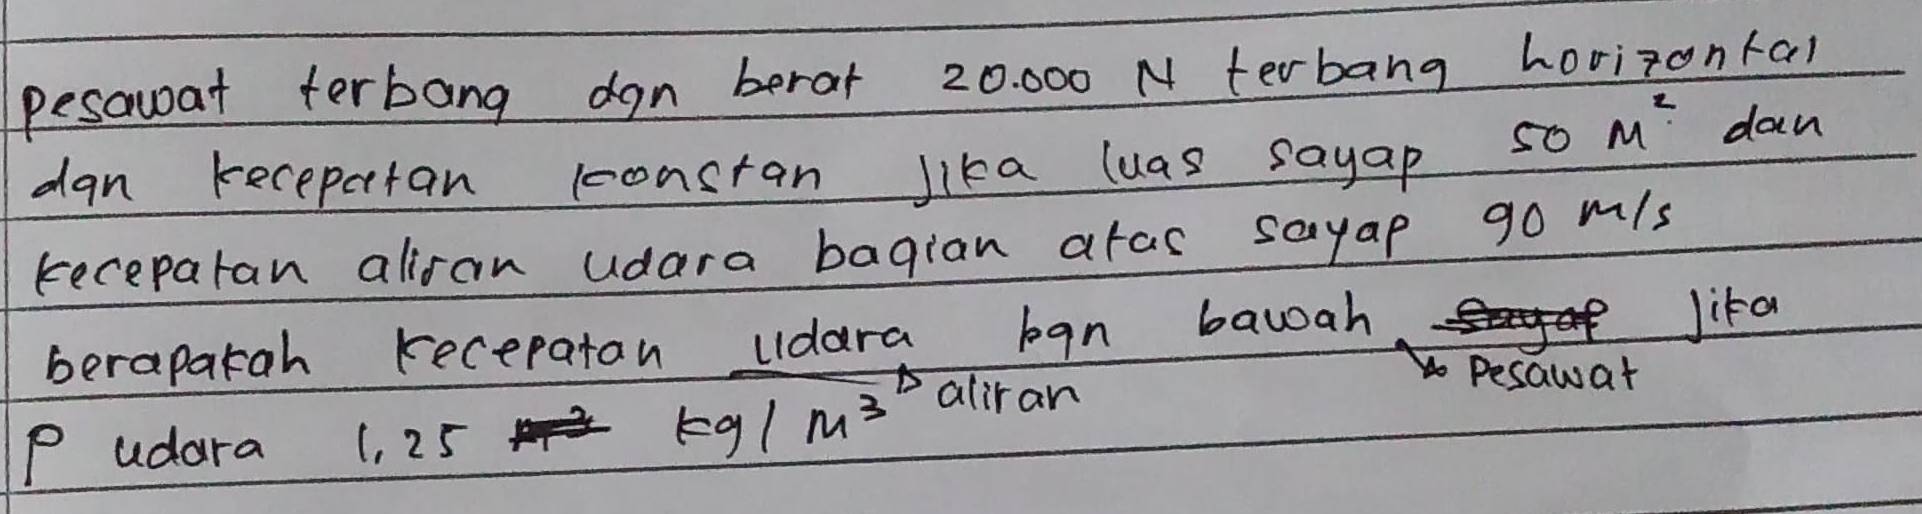 pesawat terbang dgn berat 20.000 N terbang horizontal
dgn kecepatan konstan Jika luas sayap 50 M² dan
kecepatan aliran udara bagian atas sayap 90 m/s
berapakah kecepatan udara bgn bawah sayap Jika
aliran Pesawat
ρ udara 1,25 kg/m³